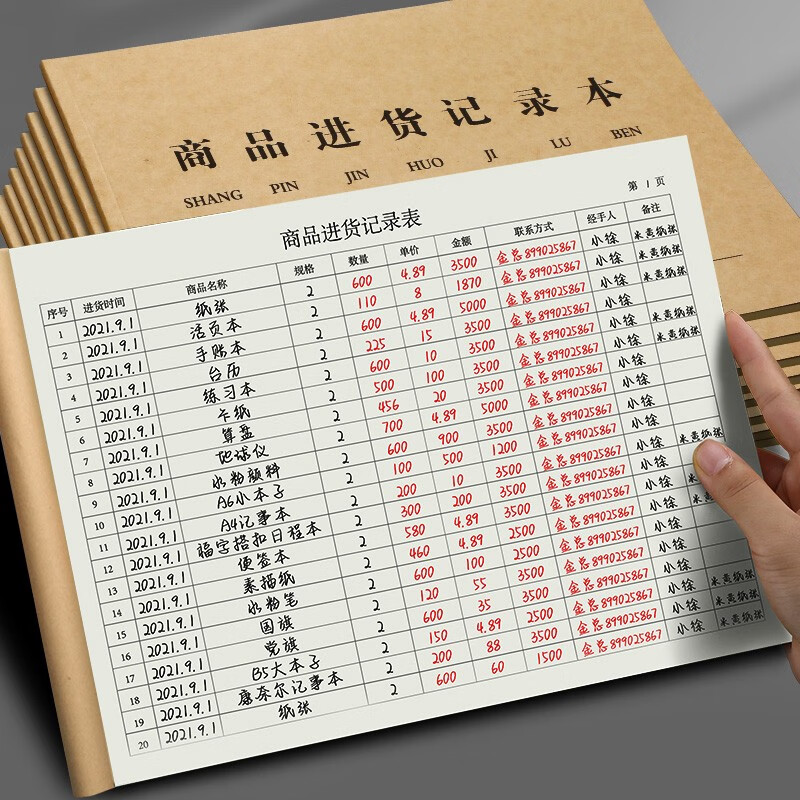 商品进货记录本
SHANG PIN JIN HUO JI LU BEN
第 1 页
商品进货记录表
序号 进货时间 商品名称 规格 数量 单价 金额 联系方式 经手人 备注
1 2021.9.1 纸张 2 600 4.89 3500 金总899025867 小徐 米黄纸张
2 2021.9.1 活页本 2 110 8 1870 金总899025867 小徐 米黄纸张
3 2021.9.1 手账本 2 600 4.89 5000 金总899025867 小徐 米黄纸张
4 2021.9.1 台历 2 225 15 3500 金总899025867 小徐
5 2021.9.1 练习本 2 600 10 3500 金总899025867 小徐 米黄纸张
6 2021.9.1 卡纸 2 500 100 3500 金总899025867 小徐 米黄纸张
7 2021.9.1 算盘 2 456 20 3500 金总899025867 小徐
8 2021.9.1 地球仪 2 700 4.89 5000 金总899025867 小徐
9 2021.9.1 水粉颜料 2 600 900 3500 金总899025867 小徐
10 2021.9.1 A6小本子 2 100 500 1200 金总899025867 小徐
11 2021.9.1 A4记事本 2 200 10 3500 金总899025867 小徐 米黄纸张
12 2021.9.1 福字搭扣日程本 2 300 200 3500 金总899025867 小徐
13 2021.9.1 便签本 2 580 4.89 3500 金总899025867 小徐 米
14 2021.9.1 素描纸 2 460 4.89 2500 金总899025867 小徐 米
15 2021.9.1 水粉笔 2 600 100 2500 金总899025867 小徐
16 2021.9.1 国旗 2 120 55 3500 金总899025867 小徐
17 2021.9.1 党旗 2 600 35 3500 金总899025867 小徐
18 2021.9.1 B5大本子 2 150 4.89 2500 金总899025867 小徐 米黄纸张
19 2021.9.1 康奈尔记事本 2 200 88 3500 金总899025867 小徐 米黄纸张
20 2021.9.1 纸张 2 600 60 1500 金总899025867 小徐 米黄纸张